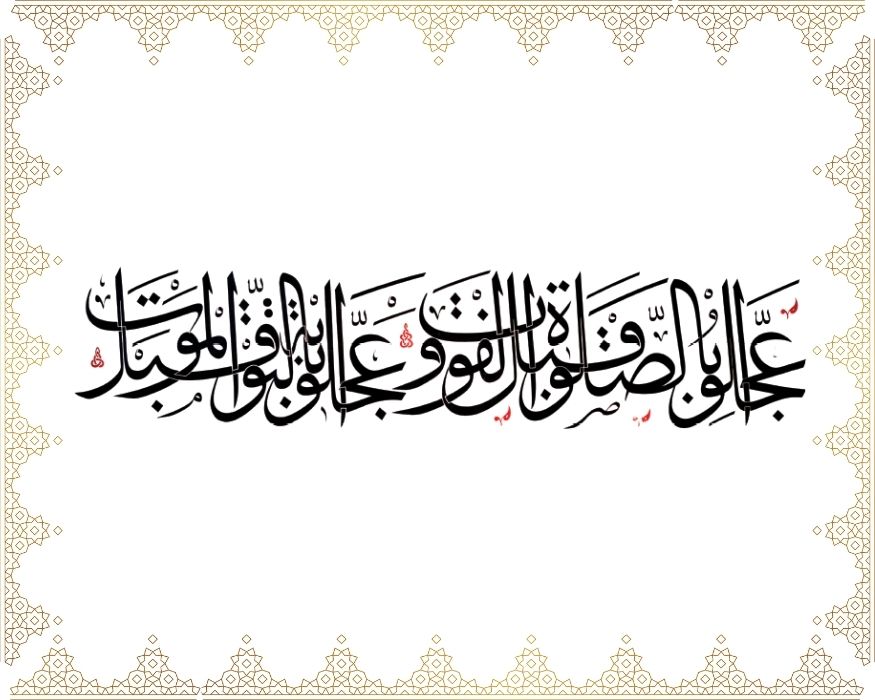 عجلوا بالصلاة قبل الفوت وعجلوا بالتوبة قبل الموت